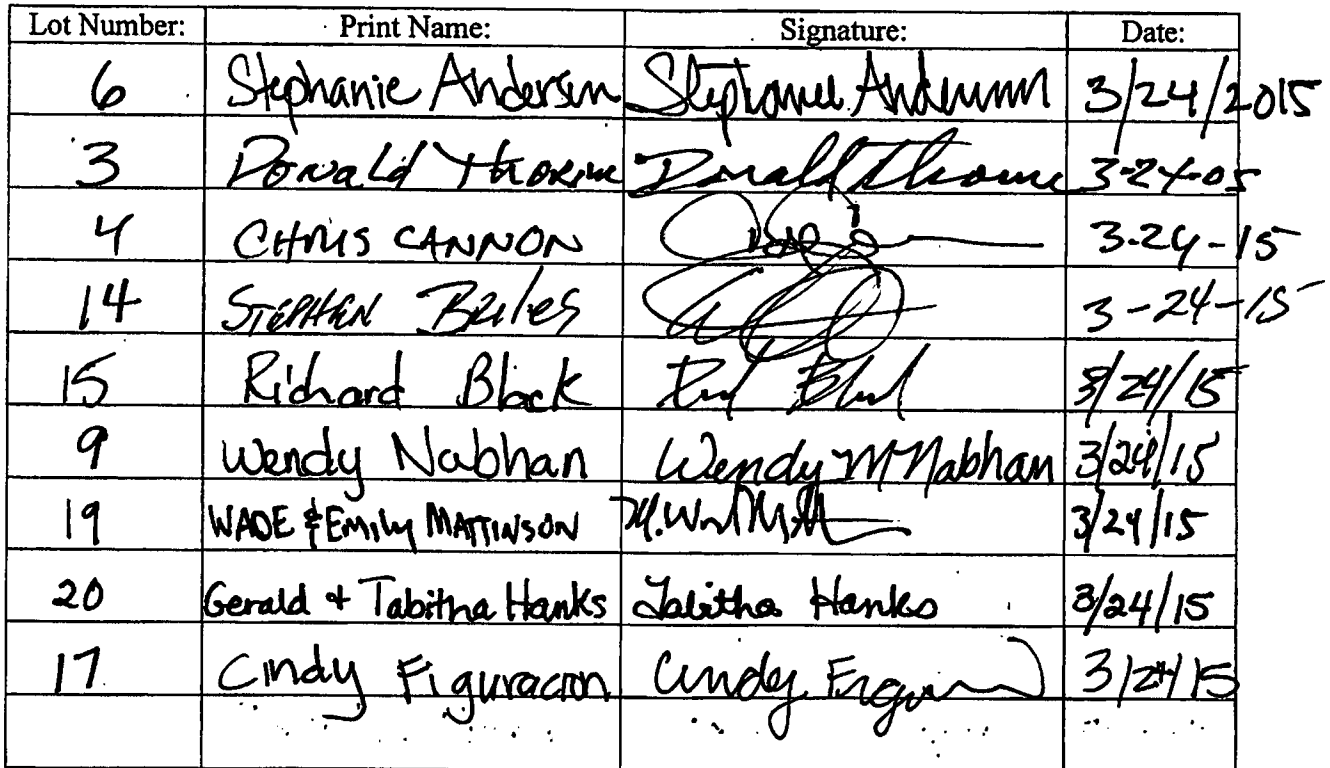 Lot Number: Print Name: Signature: Date:
6 Stephanie Anderson Stephanie Anderson 3/24/2015
3 Donald Thorine Donald Thorine 3-24-05
4 CHRIS CANNON 3-24-15
14 STEPHEN Briles 3-24-15
15 Richard Black 3/24/15
9 Wendy Nabhan Wendy M Nabhan 3/24/15
19 WADE & Emily MATTINSON 3/24/15
20 Gerald + Tabitha Hanks Tabitha Hanks 3/24/15
17 Cindy Figuracion Cindy 3/24/15